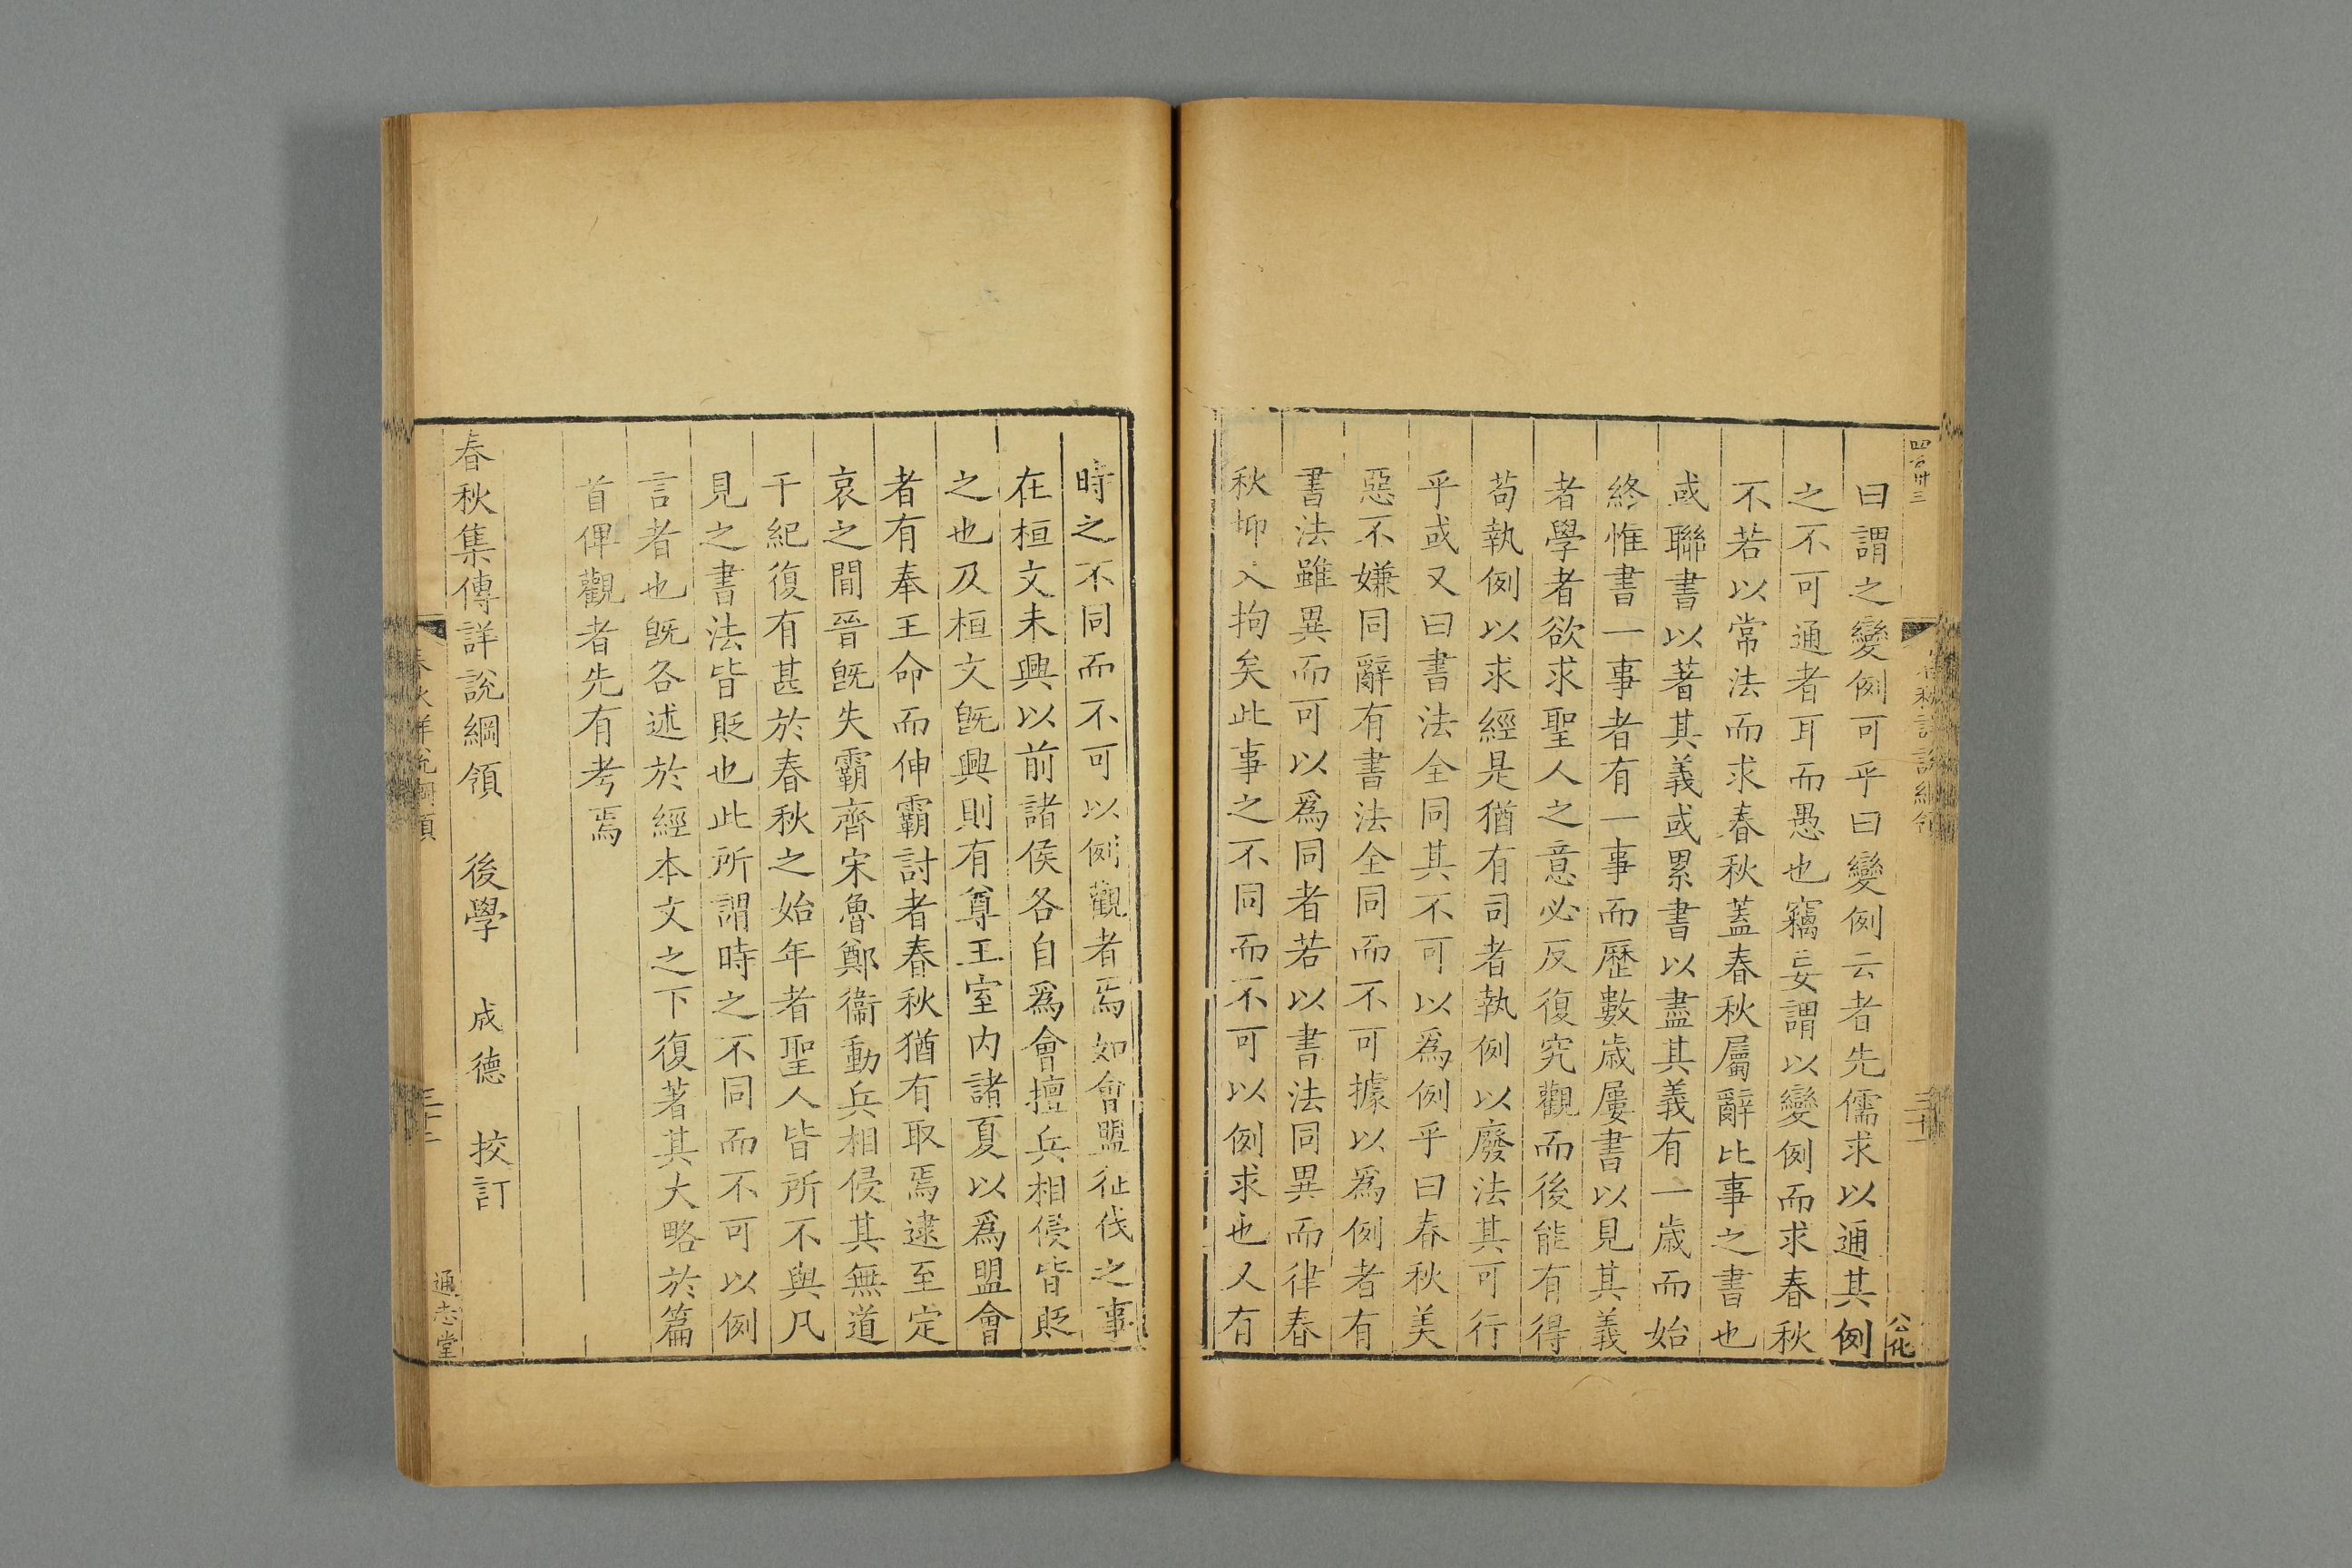 四百卅三
春秋詳說綱領
公化
曰謂之變例可乎曰變例云者先儒求以通其例
之不可通者耳而愚也竊妄謂以變例而求春秋
不若以常法而求春秋蓋春秋屬辭比事之書也
或聯書以著其義或累書以盡其義有一歲而始
終惟書一事者有一事而歷數歲屢書以見其義
者學者欲求聖人之意必反復究觀而後能有得
苟執例以求經是猶有司者執例以廢法其可行
乎或又曰書法全同其不可以為例乎曰春秋美
惡不嫌同辭有書法全同而不可據以為例者有
書法雖異而可以為同者若以書法同異而律春
秋抑入拘矣此事之不同而不可以例求也又有
時之不同而不可以例觀者焉如會盟征伐之事
在桓文未興以前諸侯各自爲會擅兵相侵皆貶
之也及桓文旣興則有尊王室内諸夏以爲盟會
者有奉王命而伸霸討者春秋猶有取焉逮至定
哀之閒晉旣失霸齊宋魯鄭衞動兵相侵其無道
干紀復有甚於春秋之始年者聖人皆所不與凡
見之書法皆貶也此所謂時之不同而不可以例
言者也旣各述於經本文之下復著其大略於篇
首俾觀者先有考焉
春秋集傳詳說綱領　後學　成德　挍訂
春秋詳說綱領
通志堂